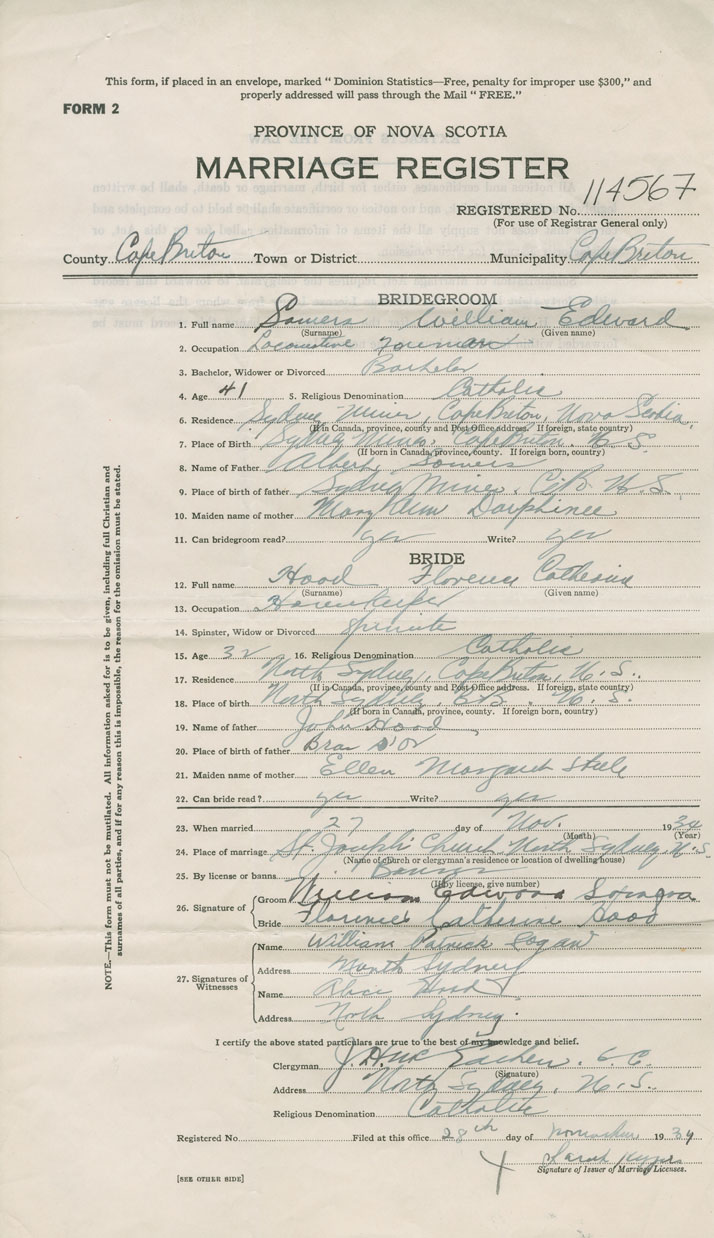 This form, if placed in an envelope, marked “ Dominion Statistics—Free, penalty for improper use $300,” and
properly addressed will pass through the Mail “ FREE.”
FORM 2
PROVINCE OF NOVA SCOTIA
MARRIAGE REGISTER
REGISTERED No. 114567
(For use of Registrar General only)
County Cape Breton Town or District Municipality Cape Breton
BRIDEGROOM
1. Full name Somers William Edward
(Surname) (Given name)
2. Occupation Locomotive
3. Bachelor, Widower or Divorced Bachelor
4. Age 41 5. Religious Denomination Catholic
6. Residence Sydney Mines, Cape Breton, Nova Scotia
(If in Canada, province, county and Post Office address. If foreign, state country)
7. Place of Birth Sydney Mines, Cape Breton, N.S.
(If born in Canada, province, county. If foreign born, country)
8. Name of Father Albert Somers
9. Place of birth of father Sydney Mines, C.B. N.S.
10. Maiden name of mother Mary Ann Dorphinee
11. Can bridegroom read? yes Write? yes
BRIDE
12. Full name Hood Florence Catherine
(Surname) (Given name)
13. Occupation Housekeeper
14. Spinster, Widow or Divorced
15. Age 32 16. Religious Denomination Catholic
17. Residence North Sydney, Cape Breton, N.S.
(If in Canada, province, county and Post Office address. If foreign, state country)
18. Place of birth North Sydney, N.S.
(If born in Canada, province, county. If foreign born, country)
19. Name of father John Hood
20. Place of birth of father Bras D'Or
21. Maiden name of mother Ellen Margaret Steele
22. Can bride read ? yes Write? yes
23. When married 27 day of Nov. 1934
(Month) (Year)
24. Place of marriage St. Joseph's Church North Sydney, N.S.
(Name of church or clergyman's residence or location of dwelling house)
25. By license or banns Banns
(If by license, give number)
26. Signature of Groom William Edward
Bride Florence Catherine Hood
27. Signatures of Witnesses
Name William Patrick Logan
Address North Sydney
Name Alice Hood
Address North Sydney
I certify the above stated particulars are true to the best of my knowledge and belief.
Clergyman
(Signature)
Address North Sydney, N.S.
Religious Denomination Catholic
Registered No. Filed at this office 28th day of November 1934
Sarah
Signature of Issuer of Marriage Licenses.
[SEE OTHER SIDE]
NOTE.—This form must not be mutilated. All information asked for is to be given, including full Christian and
surnames of all parties, and if for any reason this is impossible, the reason for the omission must be stated.